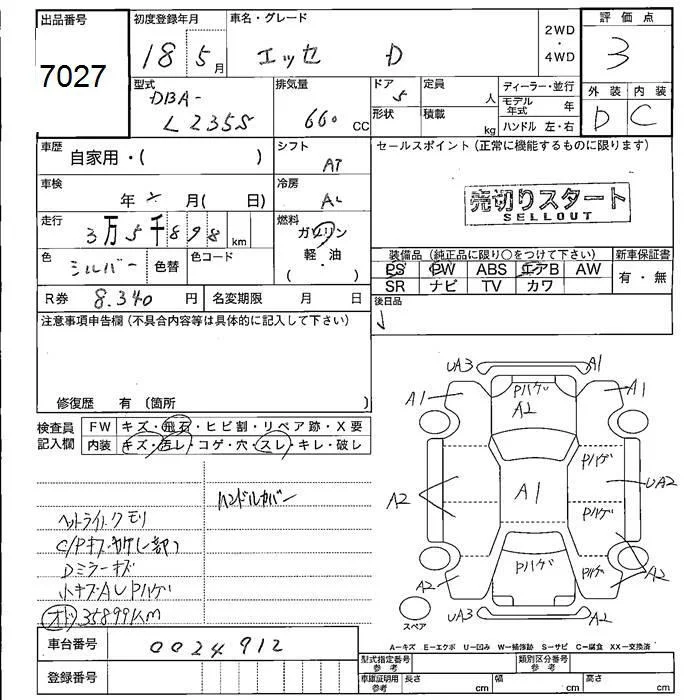 出品番号 初度登録年月 車名・グレード 2WD ・ 4WD 評価点
7027 18 5月 エッセ D 3
型式 排気量 ドア 定員 ディーラー・並行 外装 内装
DBA- L235S 660 CC 5 人 モデル年式 年 D C
形状 積載 kg ハンドル 左・右
車歴 自家用・( ) シフト AT セールスポイント(正常に機能するものに限ります)
車検 年 月( 日) 冷房 AC 売切りスタート
SELLOUT
走行 3万5千898km 燃料 ガソリン
軽・油
( ・ )
色 シルバー 色替 色コード 装備品(純正品に限り○をつけて下さい) 新車保証書
PS PW ABS エアB AW 有・無
SR ナビ TV カワ
R券 8.340円 名変期限 月 日 後日品
注意事項申告欄(不具合内容等は具体的に記入して下さい)
修復歴 有(箇所 )
検査員記入欄 FW キズ・飛石・ヒビ割・リペア跡・X要
内装 キズ・汚レ・コゲ・穴・スレ・キレ・破レ
ハンドルカバー
ヘットライトクモリ
Dミラーキズ
小キズAU Pハゲ
オド 35899KM
UA3 A1
A1 Pハゲ A2 A1
Pハゲ
A2 A1 UA2
Pハゲ
A2 Pハゲ Pハゲ A2
UA3 A2
スペア
車台番号 0024912
A-キズ E-エクボ U-凹み W-補修跡 S-サビ C-腐食 XX-交換済
型式指定番号 参考 類別区分番号 参考
登録番号 車庫証明用 参考 長さ cm 幅 cm 高さ cm